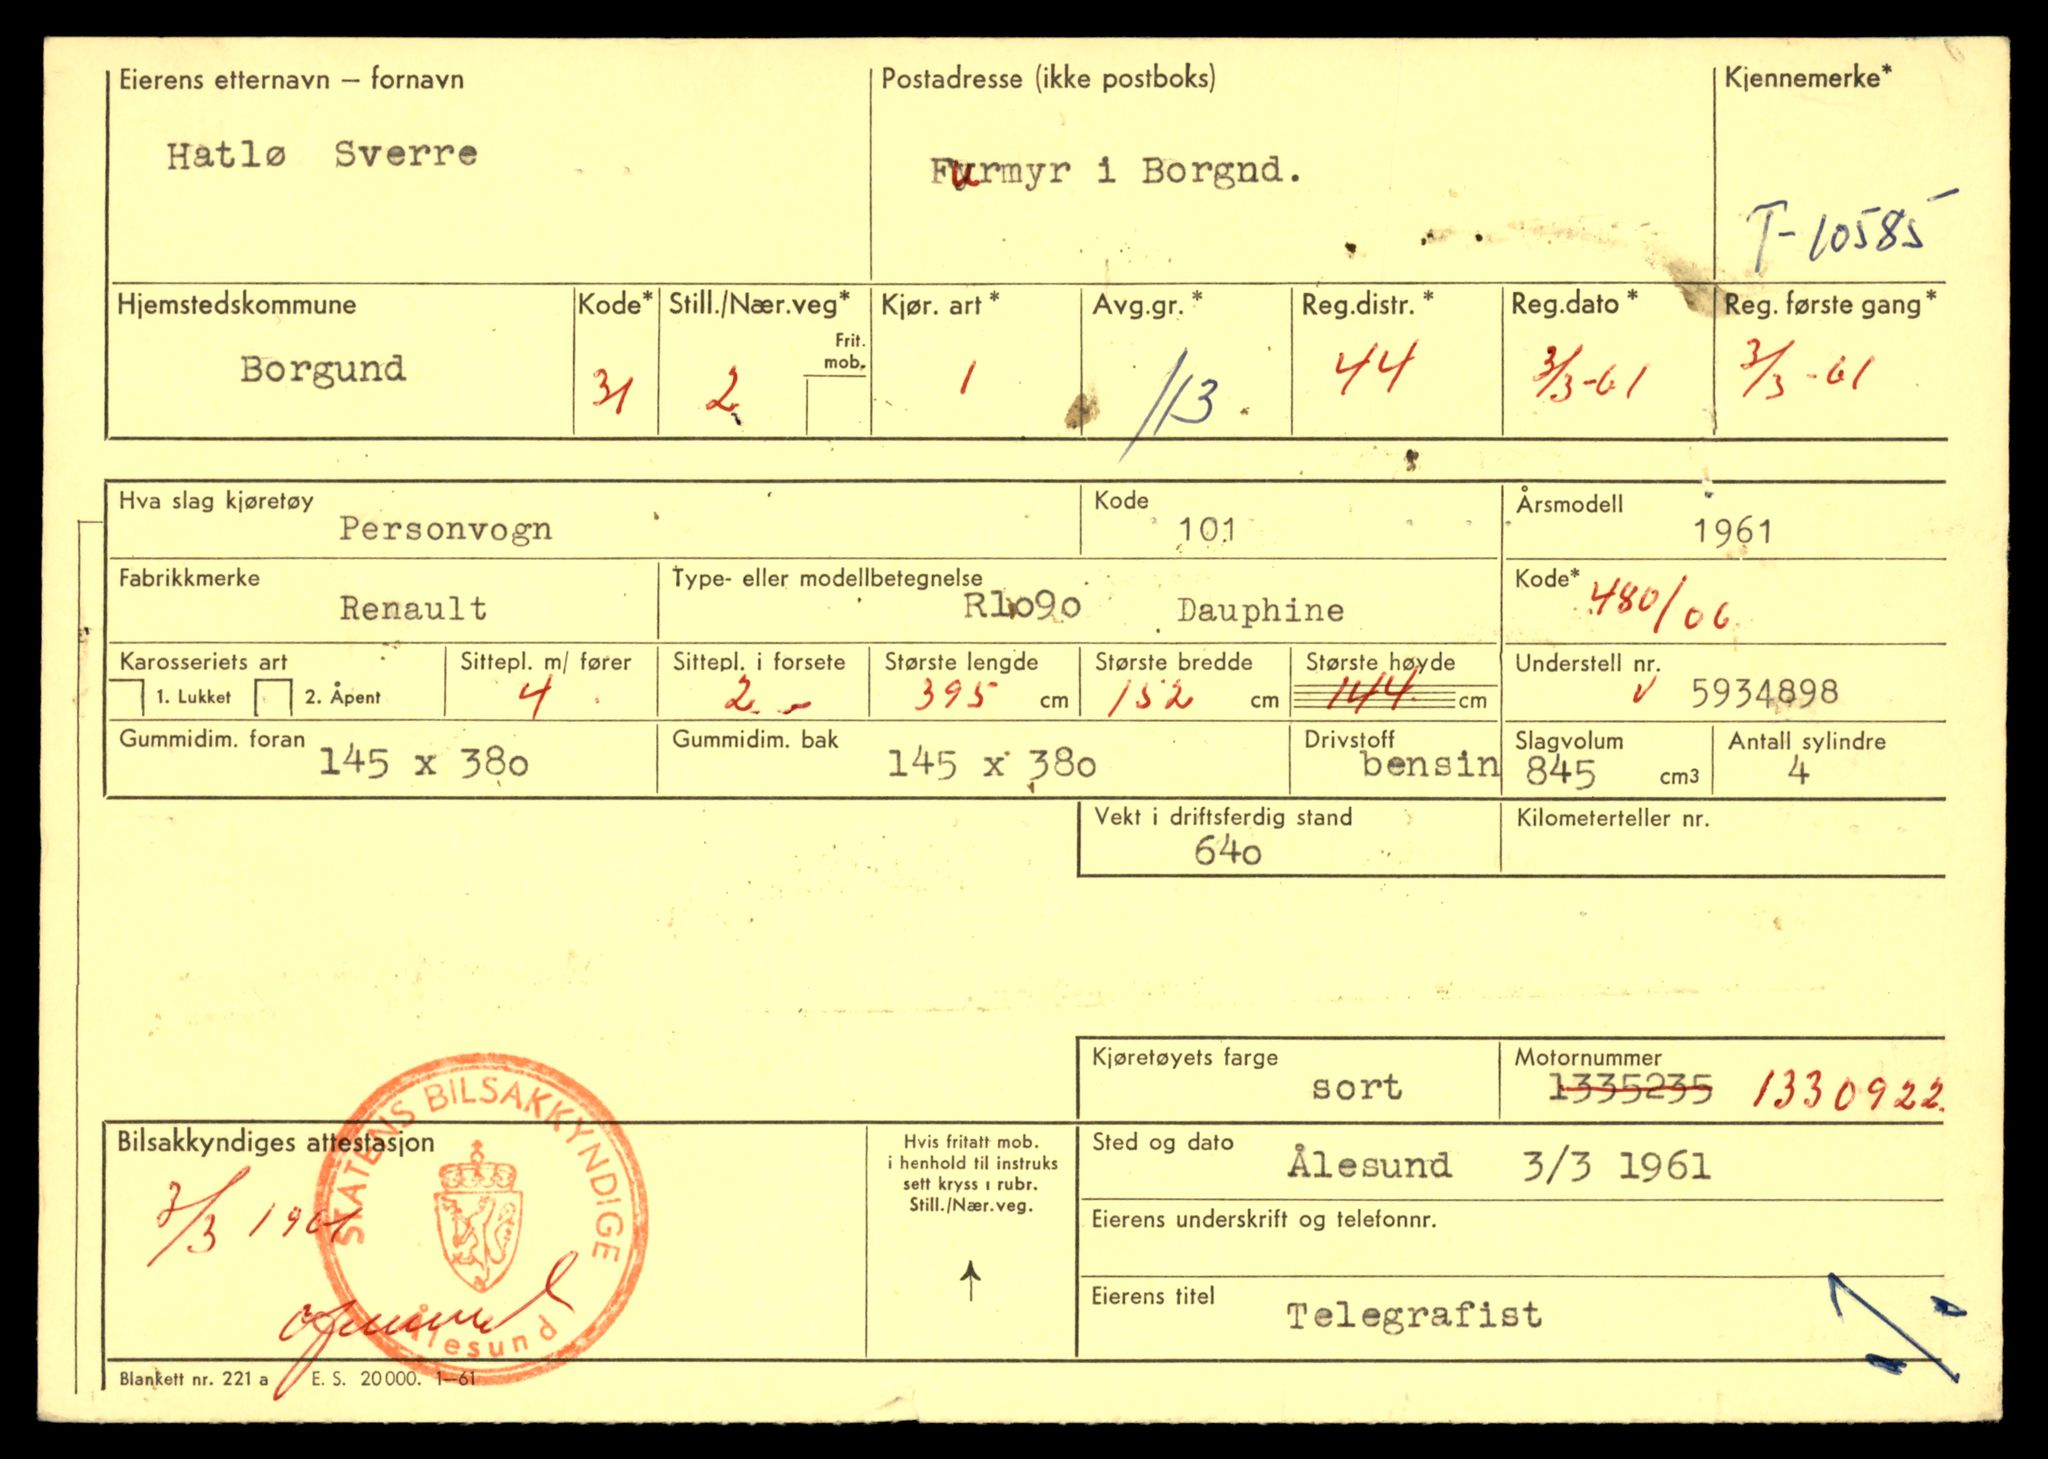 Eierens etternavn – fornavn Postadresse (ikke postboks) Kjennemerke*
Hatlø Sverre Furmyr i Borgnd.
T-10585
Hjemstedskommune Kode* Still./Nær.veg* Kjør. art* Avg.gr.* Reg.distr.* Reg.dato* Reg. første gang*
Frit. mob.
Borgund 31 2 1 113 44 3/3-61 3/3-61
Hva slag kjøretøy Kode Årsmodell
Personvogn 101 1961
Fabrikkmerke Type- eller modellbetegnelse Kode*
Renault R1o9o Dauphine 480/06
Karosseriets art Sittepl. m/ fører Sittepl. i forsete Største lengde Største bredde Største høyde Understell nr.
1. Lukket 2. Åpent 4 2 395 cm 152 cm 144 cm 5934898
Gummidim. foran Gummidim. bak Drivstoff Slagvolum Antall sylindre
145 x 38o 145 x 38o bensin 845 cm3 4
Vekt i driftsferdig stand Kilometerteller nr.
64o
Kjøretøyets farge Motornummer
sort 1335235 1330922
Bilsakkyndiges attestasjon Hvis fritatt mob. Sted og dato
i henhold til instruks
sett kryss i rubr.
Still./Nær.veg.
Ålesund 3/3 1961
3/3 1961
STATENS BILSAKKYNDIGE
Ålesund
Eierens underskrift og telefonnr.
Eierens titel Telegrafist
Blankett nr. 221 a E. S. 20 000. 1–61